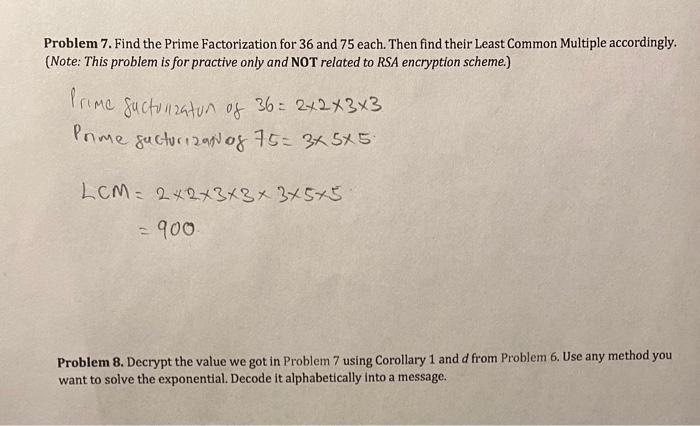 Problem 7. Find the Prime Factorization for 36 and 75 each. Then find their Least Common Multiple accordingly.
(Note: This problem is for practive only and NOT related to RSA encryption scheme.)
Prime facturization of 36 = 2×2×3×3
Prime facturization of 75 = 3×5×5
LCM = 2×2×3×3×3×5×5
= 900
Problem 8. Decrypt the value we got in Problem 7 using Corollary 1 and d from Problem 6. Use any method you
want to solve the exponential. Decode it alphabetically into a message.